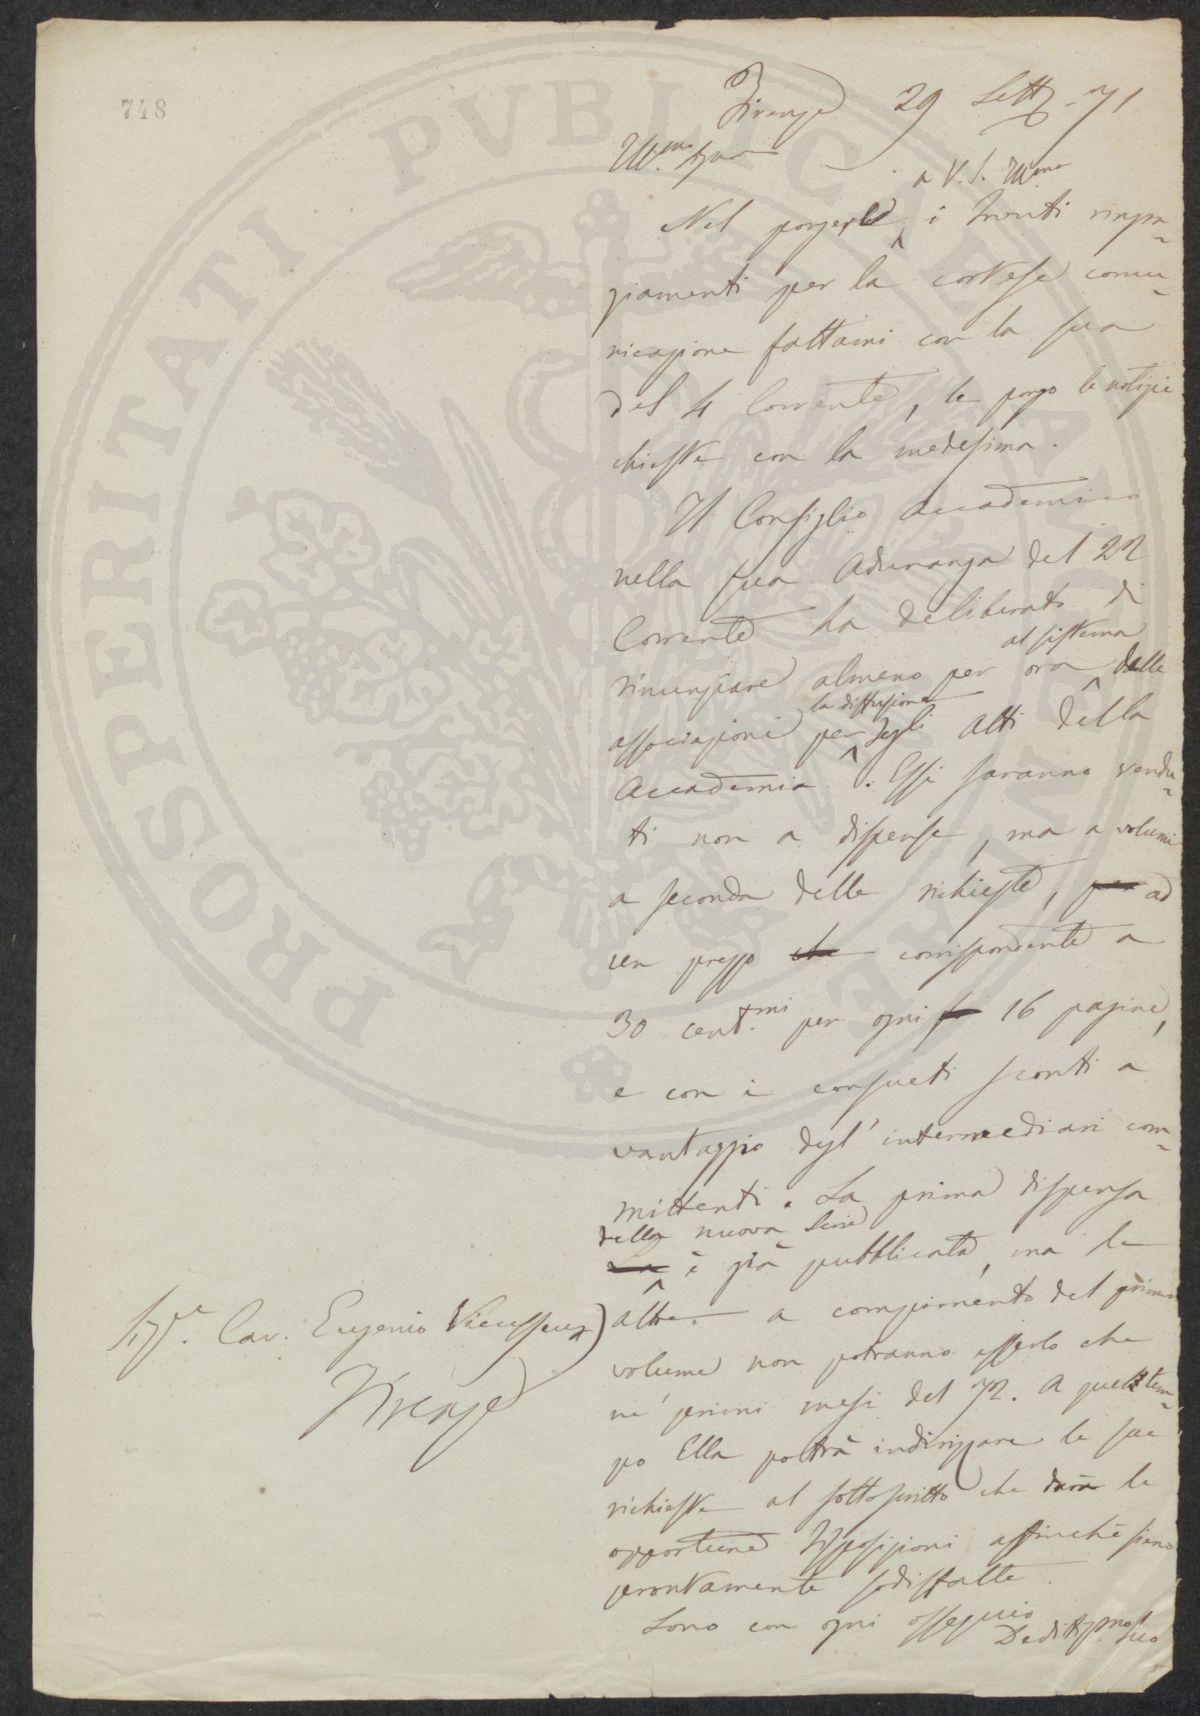 748
PROSPERITATI PUBLICAE AUGENDAE
Firenze 29 Sett. 71
Ill.mo Signore
a V. S. Ill.ma
Nel porgerle i dovuti ringra-
ziamenti per la cortese comu-
nicazione fattami con la sua
del 4 Corrente, le porgo le notizie
chieste con la medesima.
Il Consiglio Accademico
nella sua Adunanza del 22
Corrente ha deliberato di
al sistema
rinunziare almeno per ora delle
la diffusione
associazioni per degli Atti della
Accademia. Essi saranno vendu-
ti non a dispense, ma a volumi
a seconda delle richieste, per ad
un prezzo che corrispondente a
30 cent.mi per ogni 16 pagine,
e con i consueti sconti a
vantaggio degl' intermediari com-
mittenti. La prima dispensa
della nuova Serie
La è già pubblicata, ma le
altre a compimento del primo
volume non potranno esserlo che
ne' primi mesi del 72. A quel tem-
po Ella potrà indirizzare le sue
richieste al sottoscritto che darà le
opportune disposizioni affinchè sieno
prontamente sodisfatte.
Sono con ogni ossequio
Dedittmo Suo
Sigr. Cav. Eugenio Vieusseux
Firenze